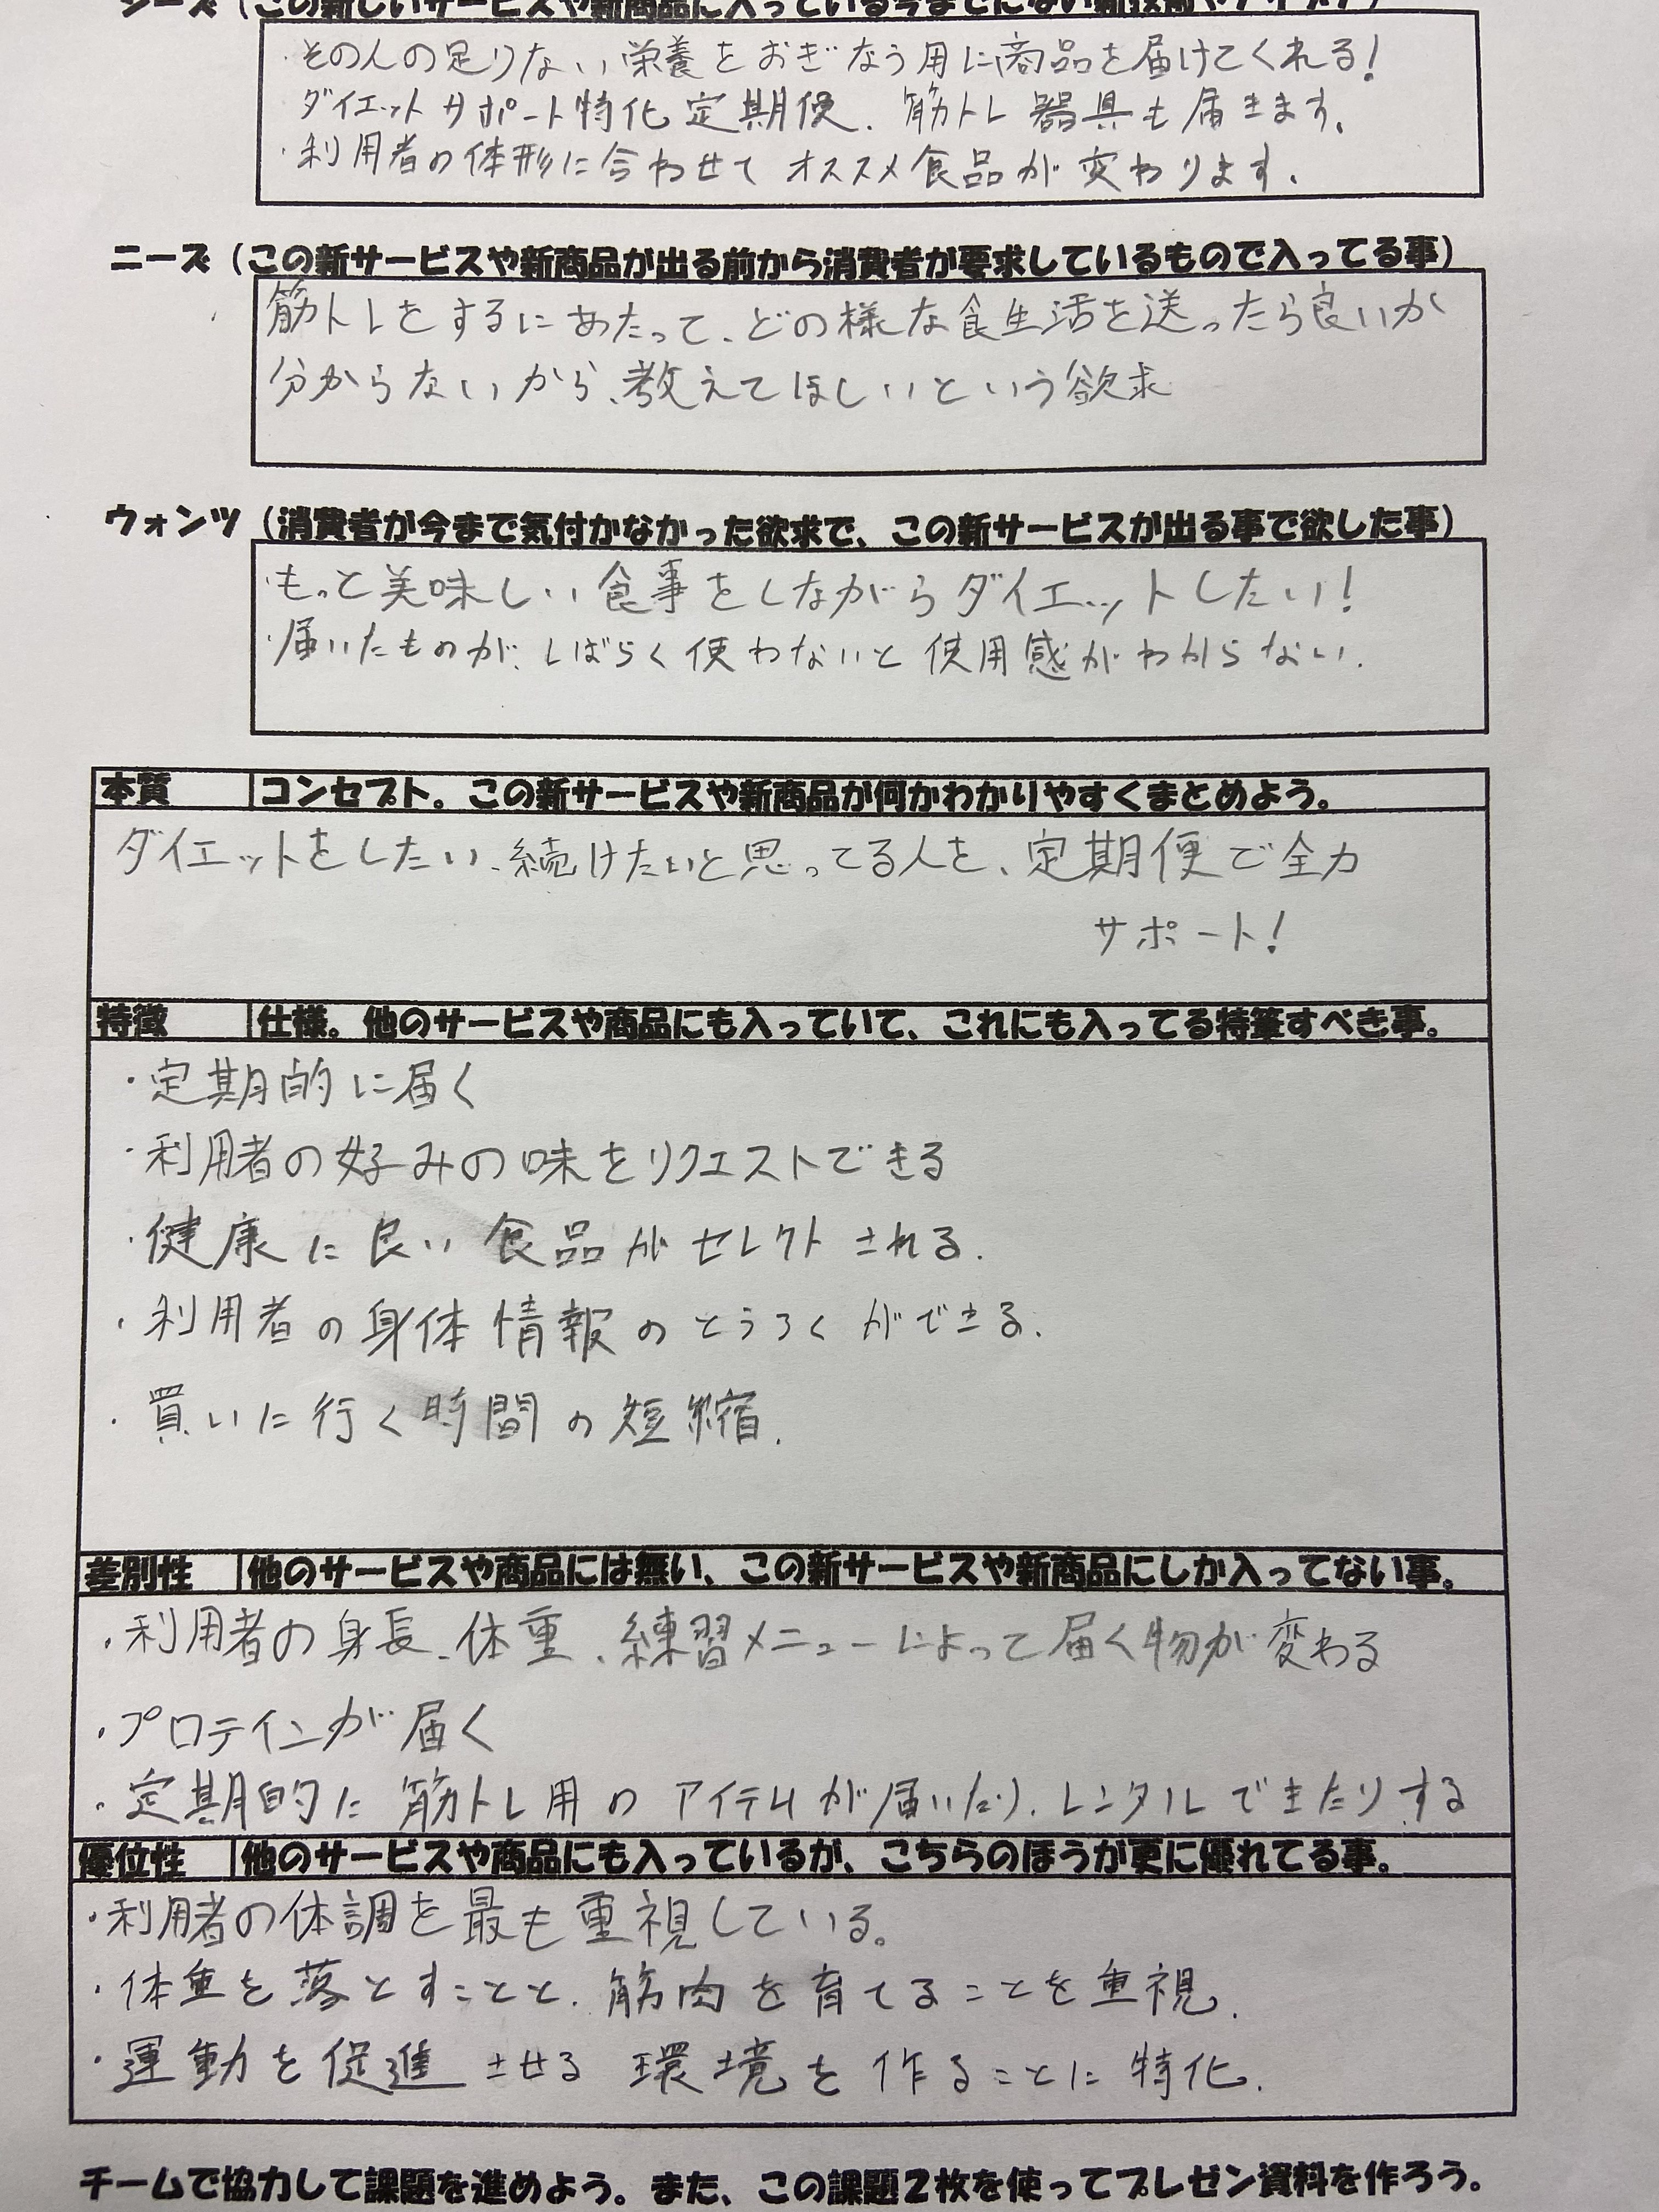 シーズ（この新しいサービスや新商品に入っている今までにない新技術やアイデア）
・その人の足りない栄養をおぎなう用に商品を届けてくれる！
ダイエットサポート特化定期便、筋トレ器具も届きます。
・利用者の体形に合わせてオススメ食品が変わります。
ニーズ（この新サービスや新商品が出る前から消費者が要求しているもので入ってる事）
筋トレをするにあたって、どの様な食生活を送ったら良いか
分からないから、教えてほしいという欲求
ウォンツ（消費者が今まで気付かなかった欲求で、この新サービスが出る事で欲した事）
・もっと美味しい食事をしながらダイエットしたい！
・届いたものが、しばらく使わないと使用感がわからない。
本質 コンセプト。この新サービスや新商品が何かわかりやすくまとめよう。
ダイエットをしたい、続けたいと思ってる人を、定期便で全力
サポート！
特徴 仕様。他のサービスや商品にも入っていて、これにも入ってる特筆すべき事。
・定期的に届く
・利用者の好みの味をリクエストできる
・健康に良い食品がセレクトされる。
・利用者の身体情報のとうろくができる。
・買いに行く時間の短縮。
差別性 他のサービスや商品には無い、この新サービスや新商品にしか入ってない事。
・利用者の身長、体重、練習メニューによって届く物が変わる
・プロテインが届く
・定期的に筋トレ用のアイテムが届いたり、レンタルできたりする
優位性 他のサービスや商品にも入っているが、こちらのほうが更に優れてる事。
・利用者の体調を最も重視している。
・体重を落とすことと、筋肉を育てることを重視。
・運動を促進させる環境を作ることに特化。
チームで協力して課題を進めよう。また、この課題２枚を使ってプレゼン資料を作ろう。